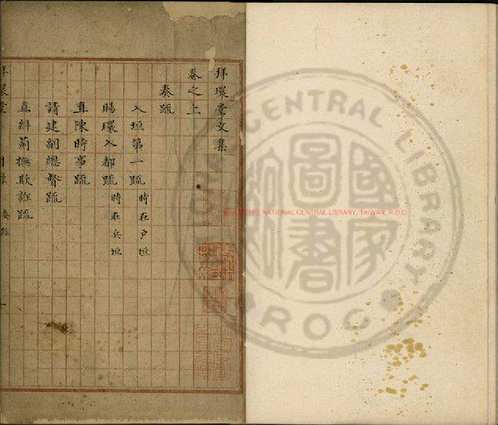 拜環堂文集
卷之上
奏疏
入垣第一疏 時在戶垣
賜環入都疏 時在兵垣
直陳時事疏
請建副總督疏
直糾薊撫欺誑疏
NATIONAL CENTRAL LIBRARY, TAIWAN, R.O.C
CENTRAL LIBRARY
ROC
國家圖書館